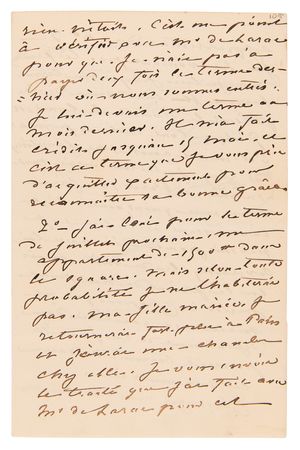 rien
C'est un point
à vérifier avec Mr de Larac
pour que je n'aie pas à
payer deux fois le terme der-
nier où nous sommes entrés.
Je lui devais un terme au
mois dernier. Il m'a fait
crédit jusqu'au 15 mai, et
c'est ce terme que je vous prie
d'acquitter exactement pour
reconnaître sa bonne grâce.
2º J'ai loué pour le terme
de juillet prochain un
appartement de 1500 dans
le square. Mais selon toute
probabilité je ne l'habiterai
pas. Ma fille mariée, je
retournerai à Paris
et j'aurai une chambre
chez elle. Je vous envoie
le traité que j'ai fait avec
Mr de Larac pour cet